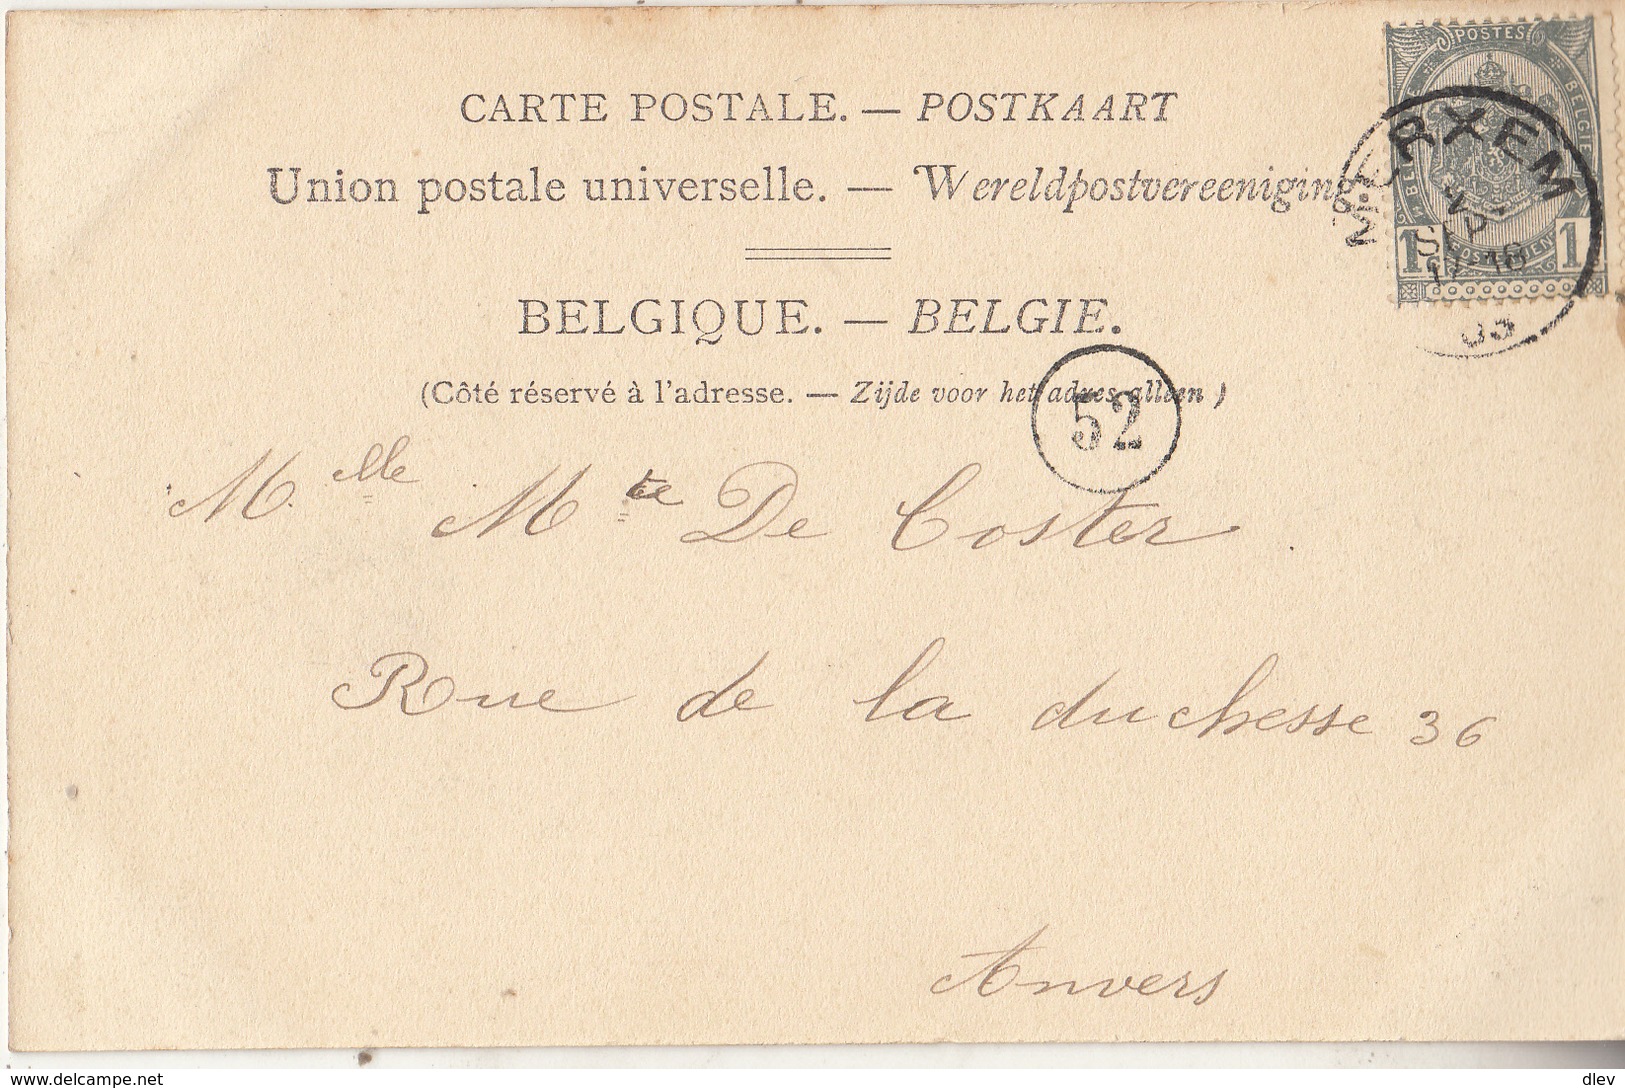 CARTE POSTALE. — POSTKAART
Union postale universelle. — Wereldpostvereeniging
BELGIQUE. — BELGIE.
(Côté réservé à l'adresse. — Zijde voor het adres alleen)
POSTES
BELGIE
1 1
MERXEM
SEP
03
52
M.lle Mte De Coster
Rue de la duchesse 36
Anvers
www.delcampe.net
dlev